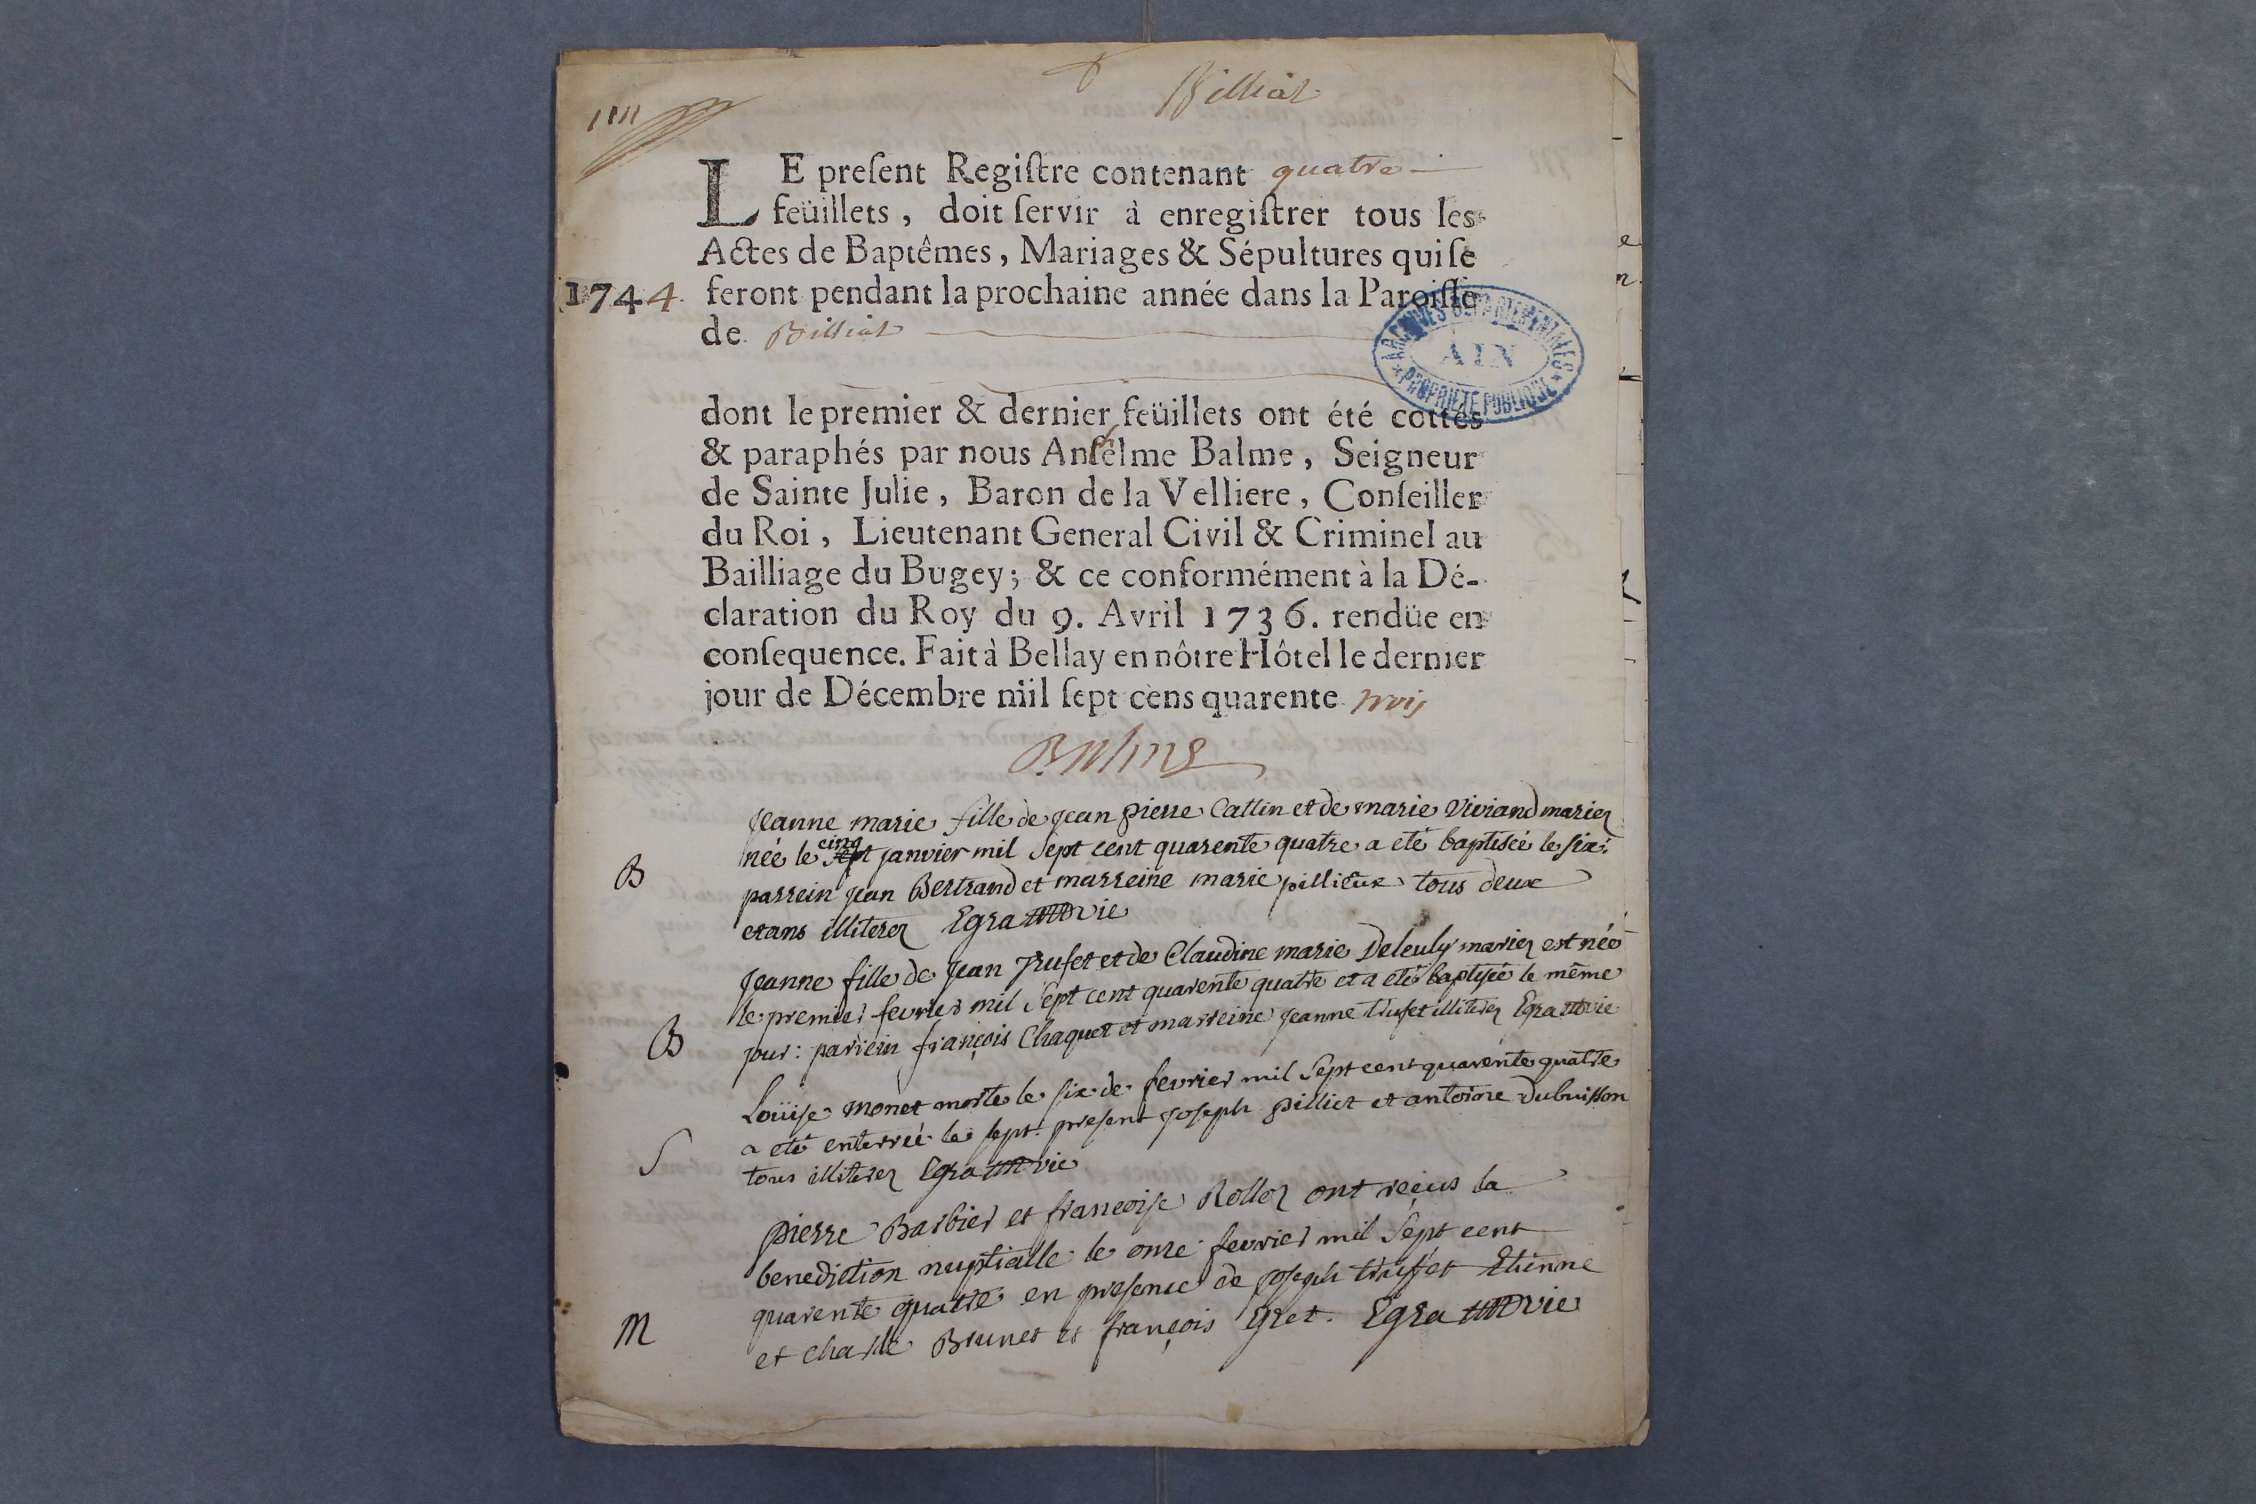 Billiat
LE preſent Regiſtre contenant quatre
feüillets, doit ſervir à enregiſtrer tous les
Actes de Baptêmes, Mariages & Sépultures qui ſe
1744. feront pendant la prochaine année dans la Paroiſſe
de Billiat
ARCHIVES DEPARTEMENTALES
AIN
PROPRIETE PUBLIQUE
dont le premier & dernier feüillets ont été cottés
& paraphés par nous Anſelme Balme, Seigneur
de Sainte Julie, Baron de la Velliere, Conſeiller
du Roi, Lieutenant General Civil & Criminel au
Bailliage du Bugey; & ce conformément à la Dé-
claration du Roy du 9. Avril 1736. rendüe en
conſequence. Fait à Bellay en nôtre Hôtel le dernier
jour de Décembre mil ſept cens quarente trois
Balme
Jeanne marie fille de Jean pierre Cattin et de marie Viviand mariez
née le cinq janvier mil Sept cent quarente quatre a eté baptisée le six:
B
parrein Jean Bertrand et marreine marie pillieux tous deux
etans illiterez Egraz vic
Jeanne fille de Jean Trufet et de Claudine marie Deleuly mariez est née
le premier fevrier mil Sept cent quarente quatre et a eté baptisée le même
B
jour: parrein françois Chaquet et marreine Jeanne trufet illiterez Egraz vic
Loüise monet morte le six de fevrier mil Sept cent quarente quatre
a eté enterrée le sept. present Joseph pilliet et antoine Dubuisson
S
tous illiterez Egraz vic
pierre Barbier et francoise Rollez ont reçus la
benediction nuptialle le onze fevrier mil Sept cent
quarente quatre en presence de Joseph truffet Etienne
M
et charle Brunet et françois Gret. Egraz vic